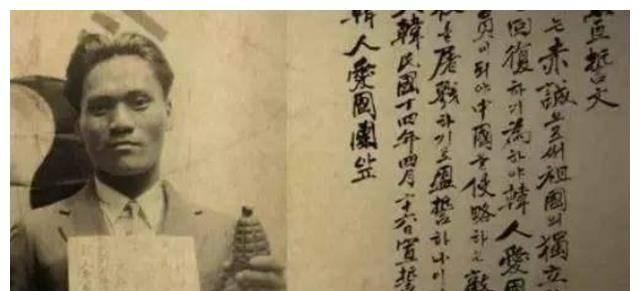 宣誓文
는赤誠으로써祖國의獨立
回復하기爲하야韓人愛國
員이되야中國을侵略하는敵
校를屠戮하기로盟誓하나이
韓民國十四年四月二十六日宣誓
韓人愛國團앞